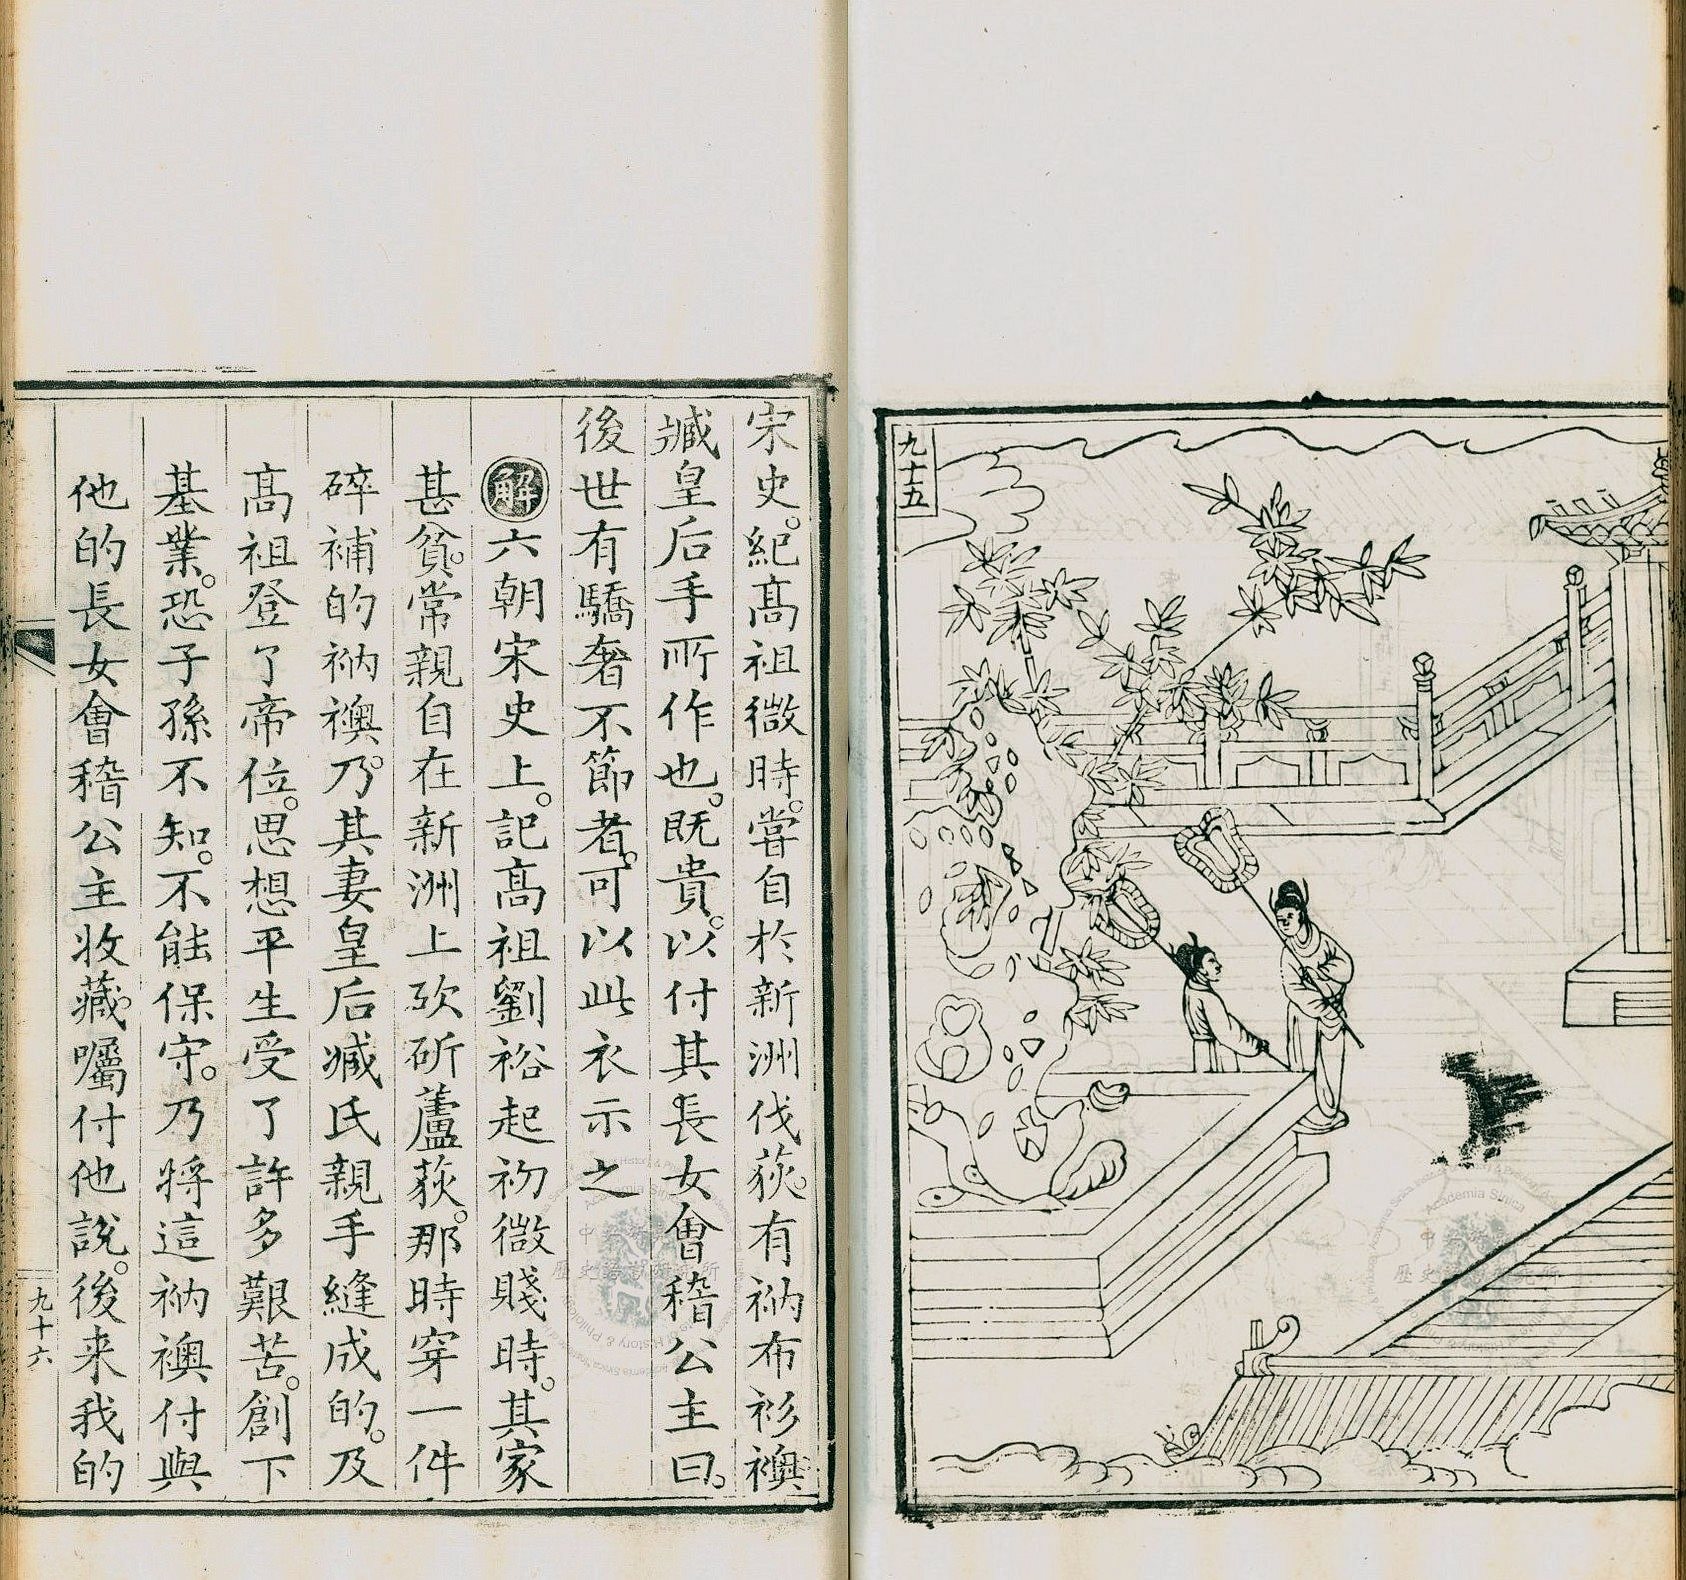 九十五
宋史。紀髙祖微時。嘗自於新洲伐荻。有衲布衫襖
臧皇后手所作也。既貴。以付其長女會稽公主曰。
後世有驕奢不節者。可以此衣示之
解六朝宋史上。記髙祖劉裕起初微賤時。其家
甚貧。常親自在新洲上砍斫蘆荻。那時穿一件
碎補的衲襖。乃其妻皇后臧氏親手縫成的。及
髙祖登了帝位。思想平生受了許多艱苦。創下
基業。恐子孫不知。不能保守。乃將這衲襖付與
他的長女會稽公主收藏。囑付他說。後来我的
九十六